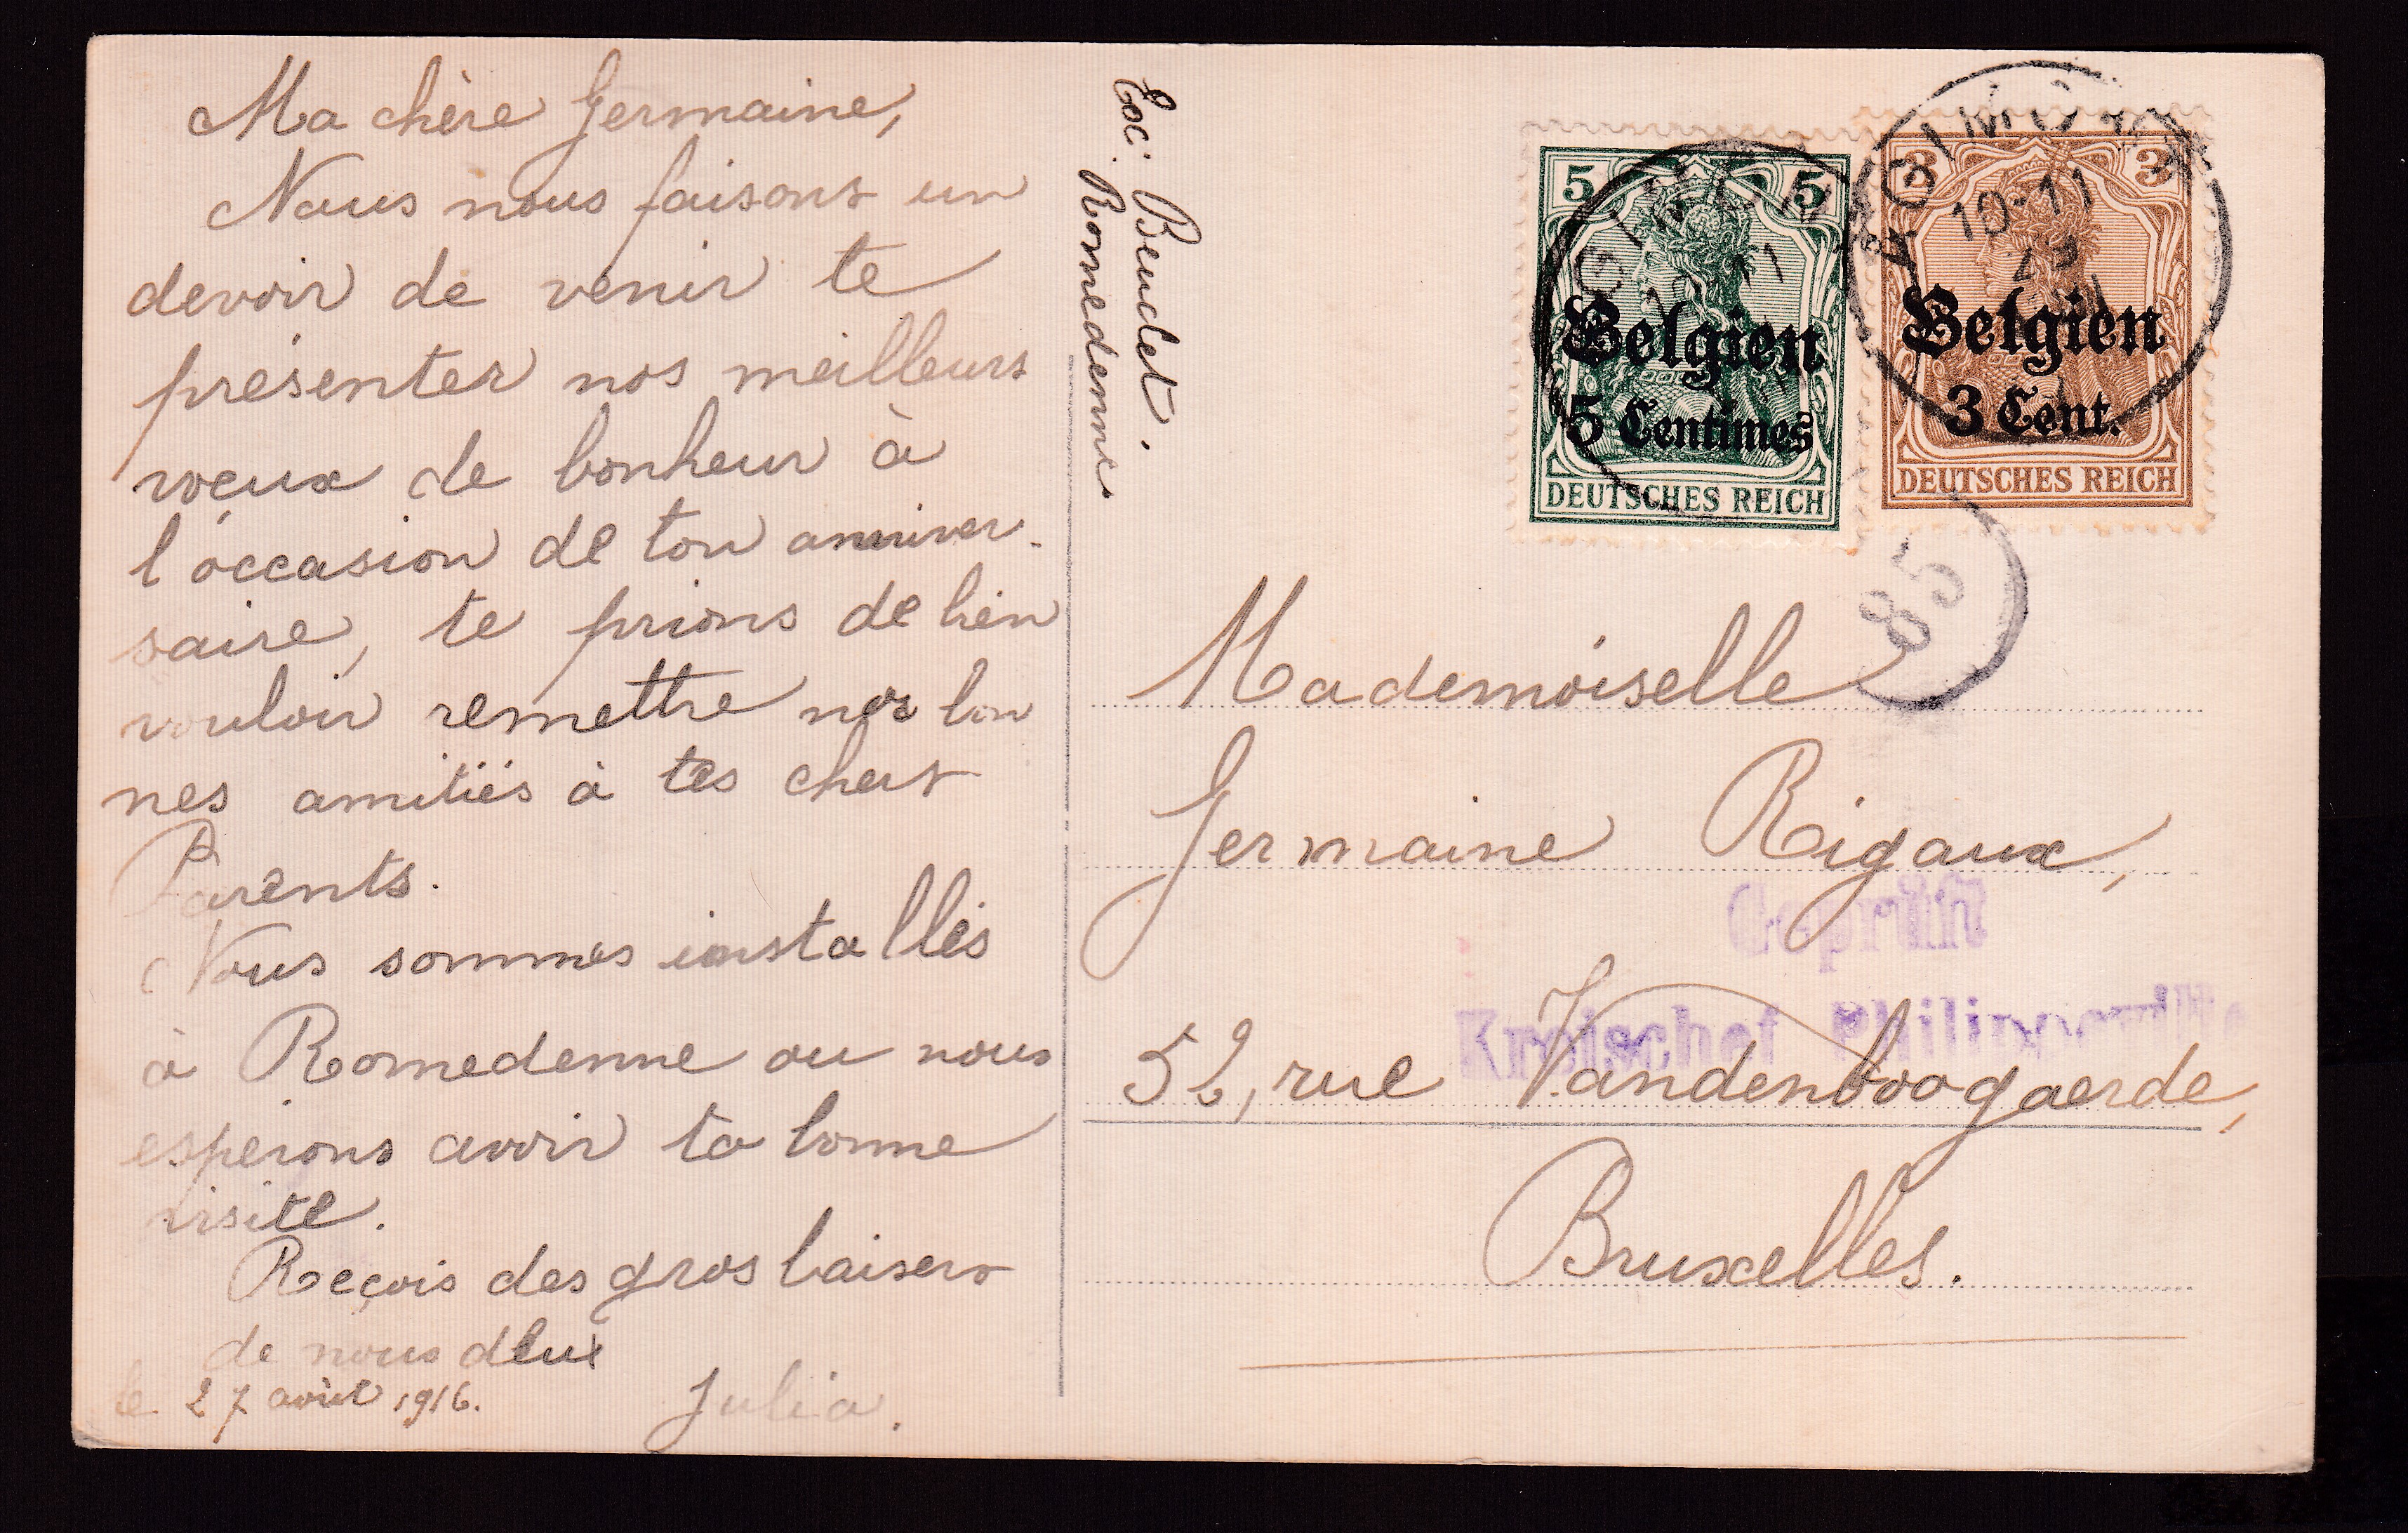 Ma chère Germaine,
Nous nous faisons un
devoir de venir te
présenter nos meilleurs
voeux de bonheur à
l'occasion de ton anniver-
saire, te prions de bien
vouloir remettre nos bon
nes amitiés à tes chers
Parents.
Nous sommes installés
à Romedenne ou nous
espérons avoir ta bonne
visite.
Reçois des gros baisers
de nous deux
le 27 août 1916.
Julia.
Beudet.
Romedenne
5 5
Belgien
5 Centimes
DEUTSCHES REICH
3 3
Belgien
3 Cent.
DEUTSCHES REICH
AGIMONT
10-11
29
85
Mademoiselle
Germaine Rigaux,
Geprüft
Kreischef Philippeville
52, rue Vandenboogaerde,
Bruxelles.